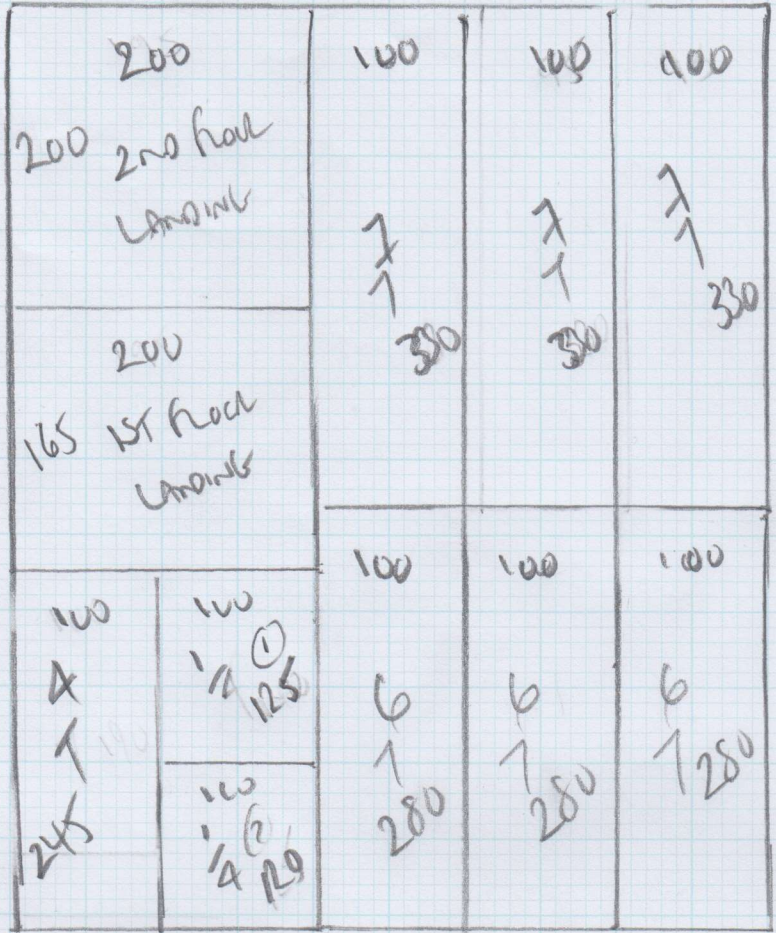 200
200 2ND FLOOR
LANDING
200
165 1ST FLOOR
LANDING
100
4
1
245
100
1/4 ①
125
100
1/4 ②
120
100
7
1
330
100
7
1
330
100
7
1
330
100
6
1
280
100
6
1
280
100
6
1
280